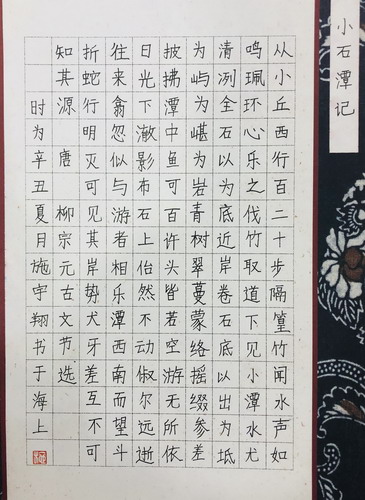 小石潭记
从小丘西行百二十步隔篁竹闻水声如
鸣珮环心乐之伐竹取道下见小潭水尤
清冽全石以为底近岸卷石底以出为坻
为屿为嵁为岩青树翠蔓蒙络摇缀参差
披拂潭中鱼可百许头皆若空游无所依
日光下澈影布石上佁然不动俶尔远逝
往来翕忽似与游者相乐潭西南而望斗
折蛇行明灭可见其岸势犬牙差互不可
知其源 唐 柳宗元古文节选
时为辛丑夏月施宇翔书于海上